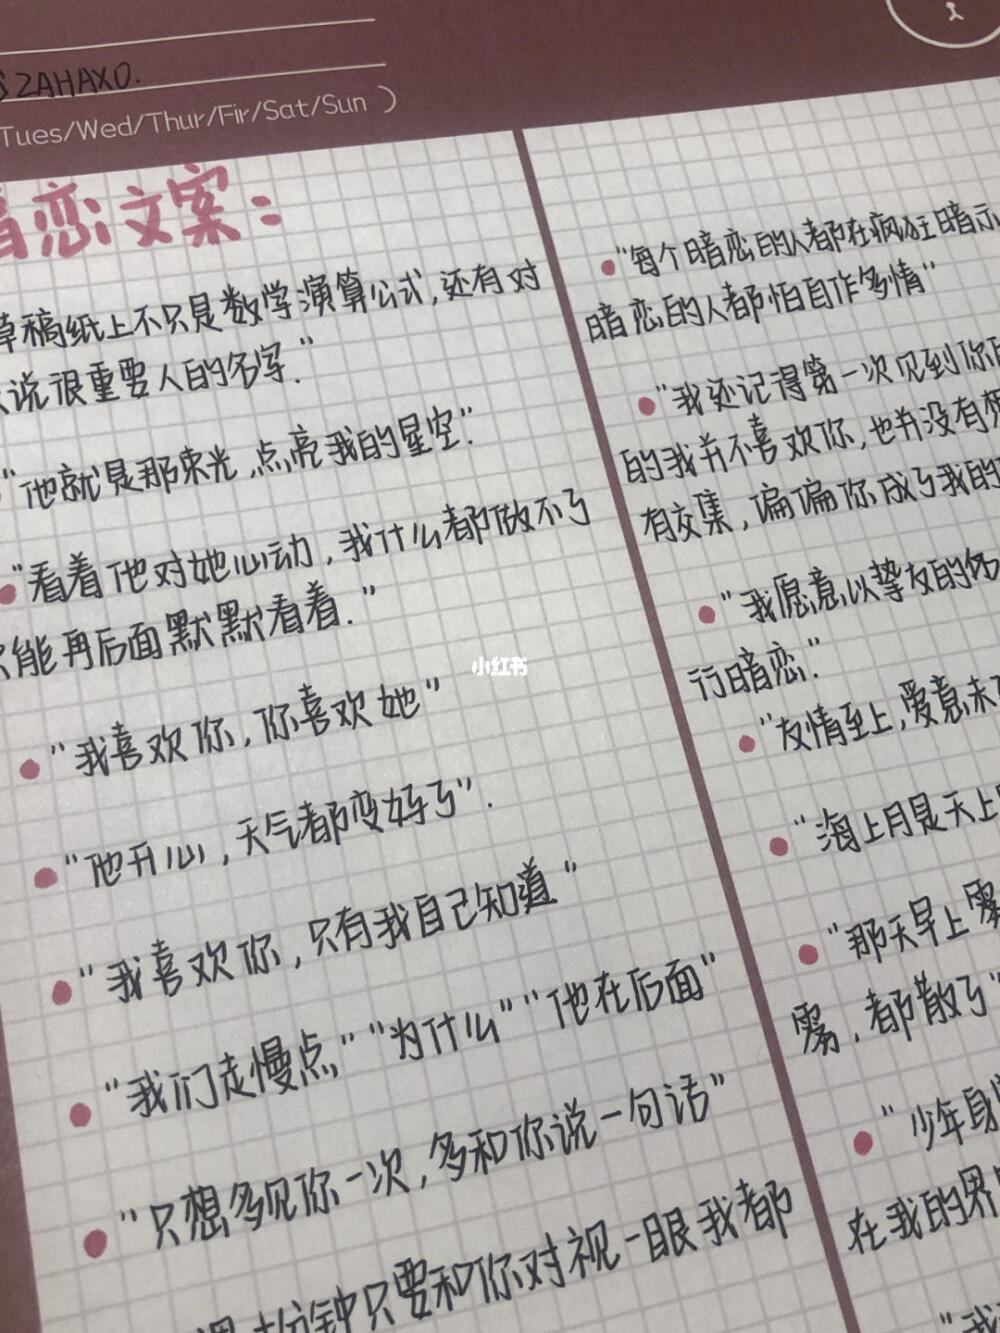 SZAHAXO.
Tues/Wed/Thur/Fir/Sat/Sun )
暗恋文案：
草稿纸上不只是数学演算公式,还有对
说很重要人的名字."
"他就是那束光,点亮我的星空".
"看着他对她心动,我什么都做不了
只能再后面默默看着."
"我喜欢你,你喜欢她"
"他开心,天气都变好了".
"我喜欢你,只有我自己知道"
"我们走慢点""为什么""他在后面"
"只想多见你一次,多和你说一句话"
分钟只要和你对视一眼我都
"每个暗恋的人都在疯狂暗示
暗恋的人都怕自作多情"
"我还记得第一次见到你
的我并不喜欢你,也并没有想
有交集,偏偏你成了我的
"我愿意以挚友的名
行暗恋."
"友情至上,爱意未
"海上月是天上
"那天早上雾
雾,都散了"
"少年身
在我的界
"我
小红书